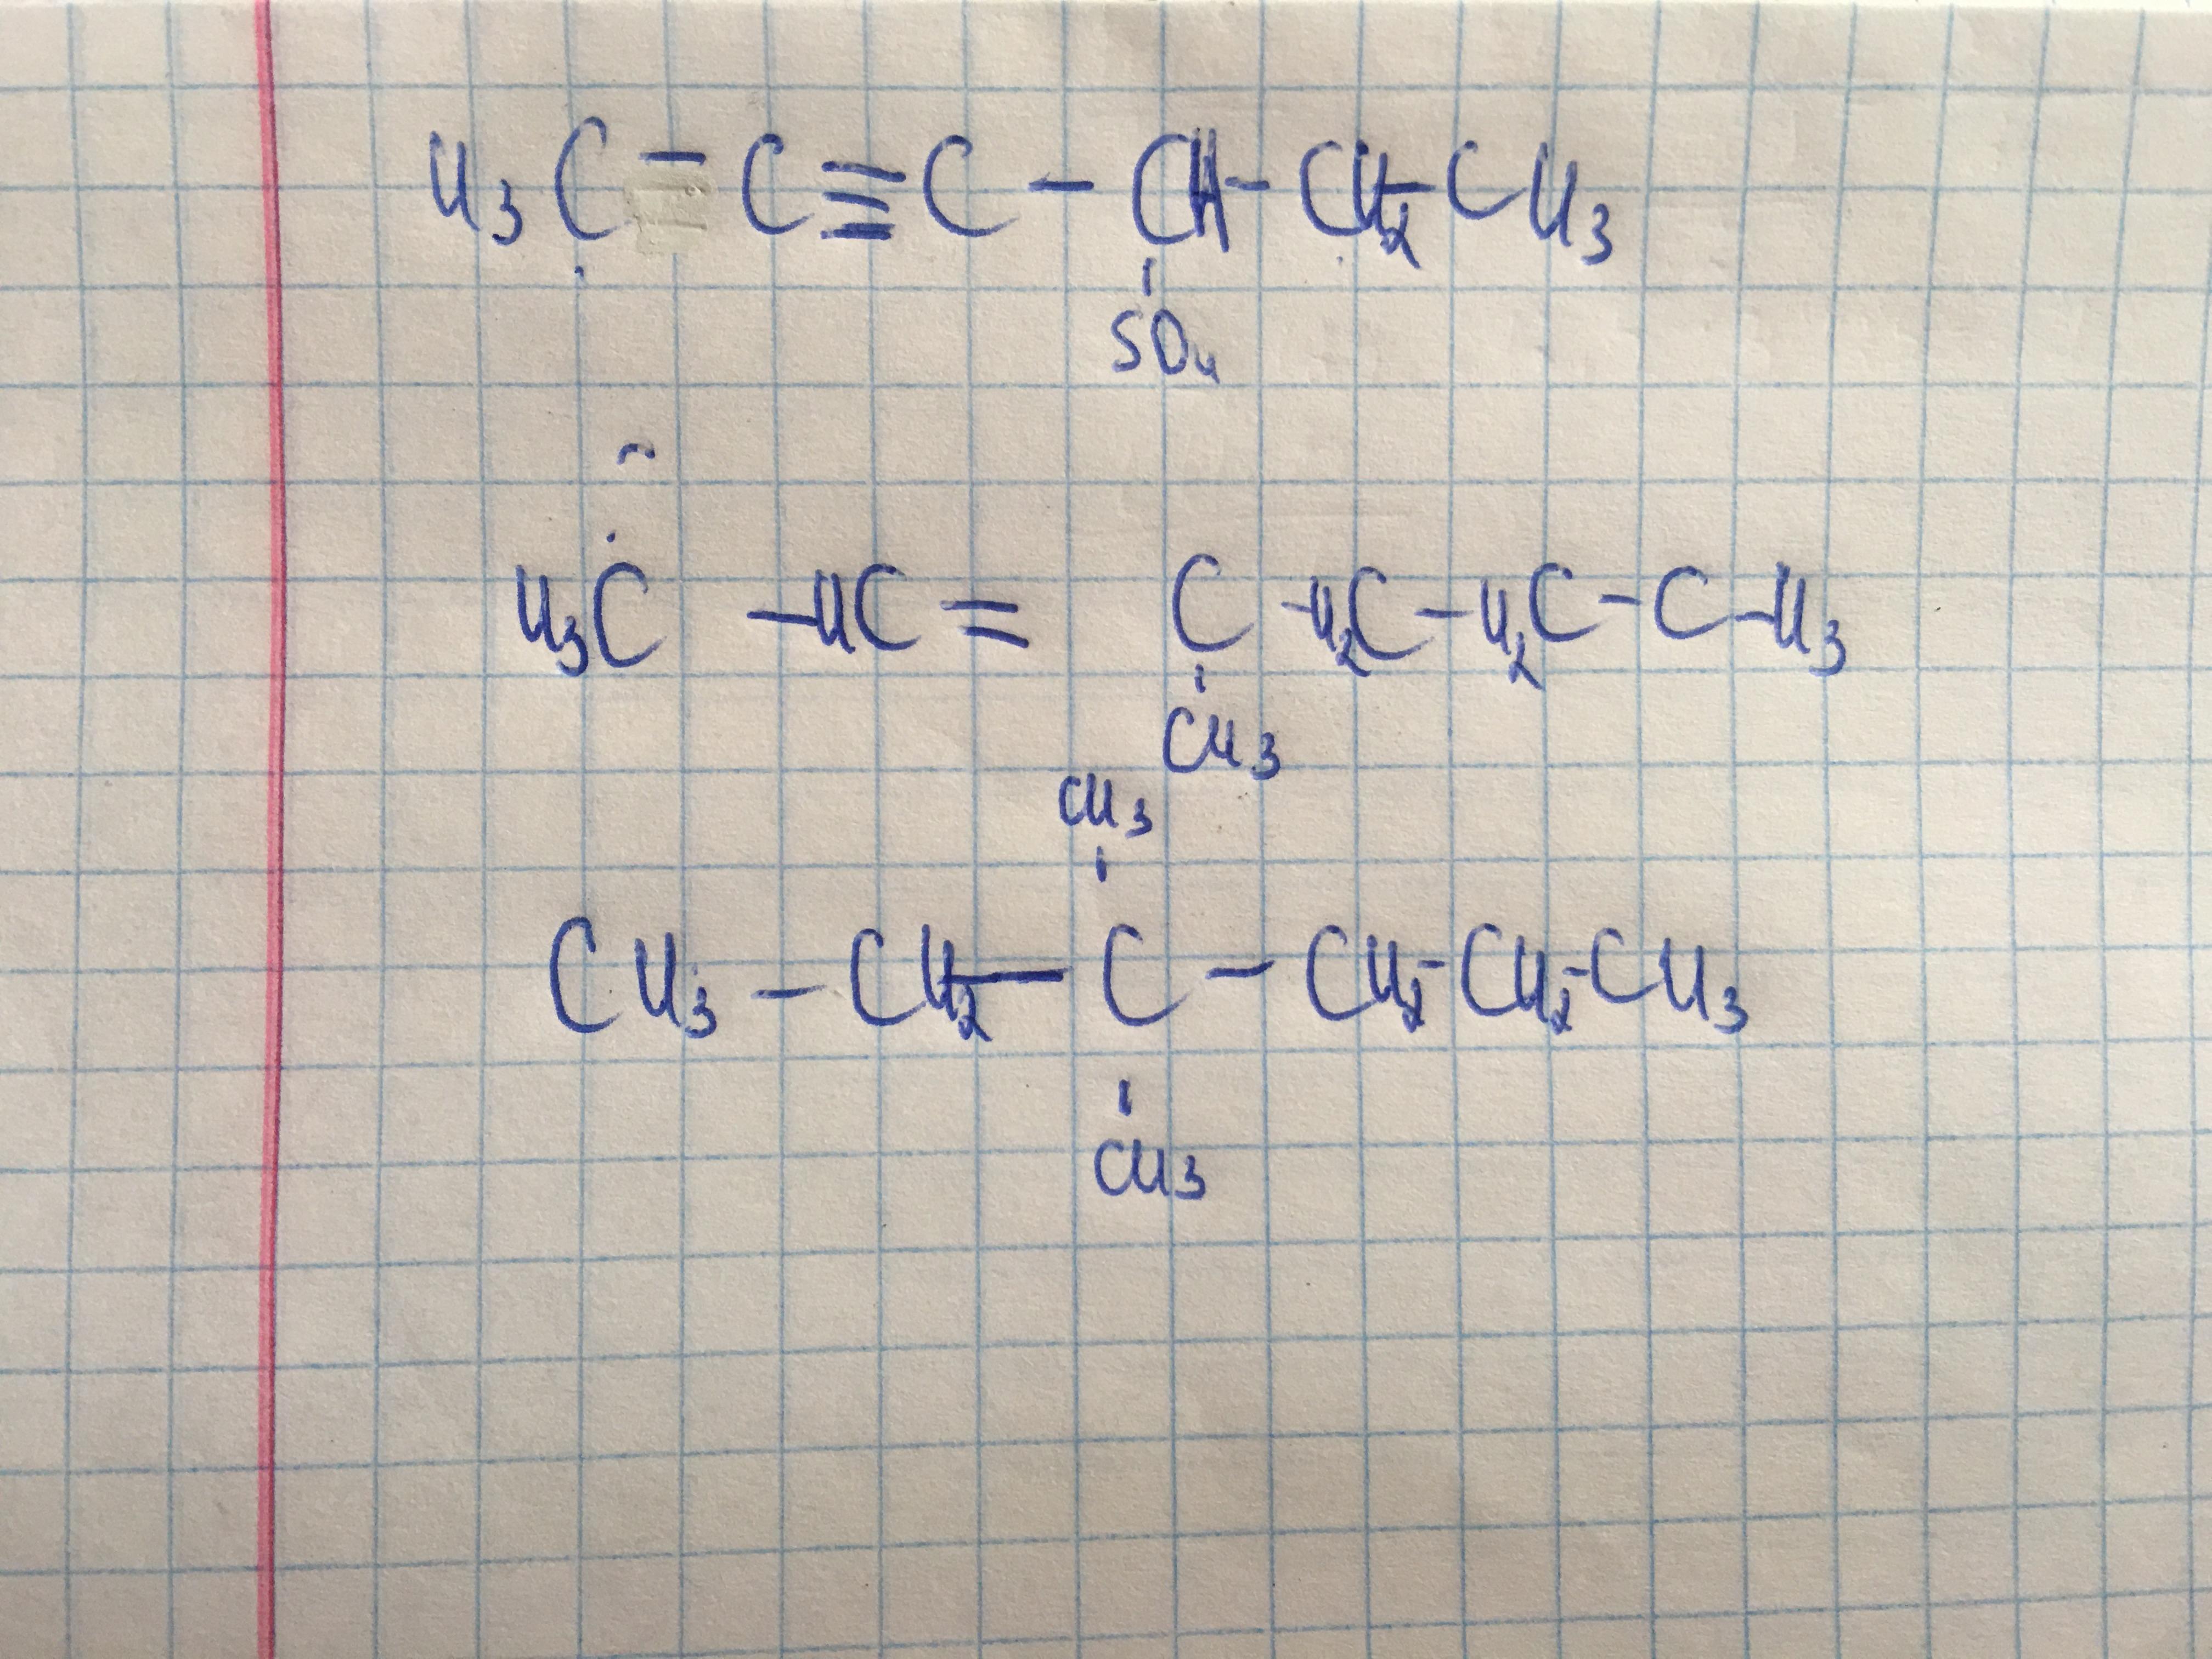 H₃C - C ≡ C - CH - CH₂ - CH₃
SO₄
H₃C - HC = C - H₂C - H₂C - C - H₃
CH₃
CH₃
CH₃ - CH₂ - C - CH₂ - CH₂ - CH₃
CH₃